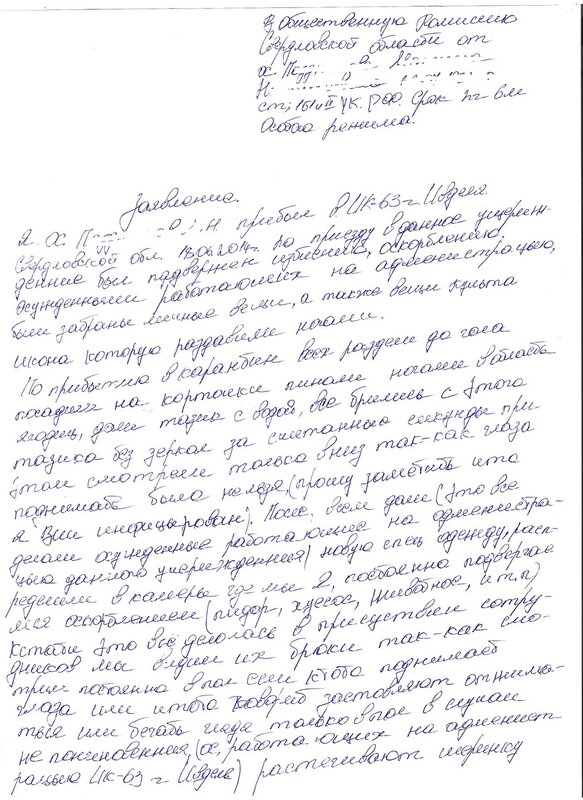 В Общественную Комисию
Свердловской области от
ос. П
Н
ст; 161 ч II УК. РФ. Срок 7г 6м
Особого режима.
Заявление.
Я. ОС. П О. Н прибыл в ИК-63 г. Ивделя
Свердловской обл. 13.06.2014г. по приезду в данное учериж-
дение был падвержен избиению, оскорблению.
осужденными работающих на администрацыю,
были забраны личные вещи, а также вещи культа
икона которую раздавили ногами.
По прибытию в карантин всех раздели до гола
посадили на корточки пинали ногами в область
ягодиц, дали тазик с водой, все брились с этого
тазика без зеркал за считанные секунды при
этом смотрели только вниз так-как глаза
поднимать было нельзя, (прошу заметить што
я Вич инфицырован). После всем дали (это все
делали осужденные работающие на администра-
цыю данного учережденния) новую спец одежду, расп-
ределили в камеры где мы 2, постоянно подвергае
мся оскорблением (пидор, хуесос, животное, и т.п)
Кстати это всё делолась в присуствии сотру-
дников мы видим их брюки так-как смо-
трим постоянно в пол если ктото поднимает
глаза или штото заставляют отжима-
ться или бегать глядя только в пол в случаи
не повиновения, (ос, работающих на админист
рацыю ИК-63 г Ивделя) растегивают ширинку